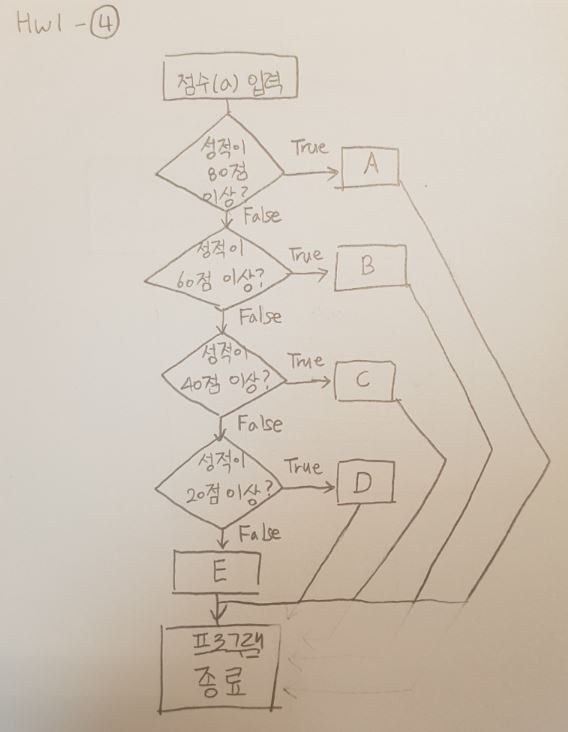 HW1 - ④
점수(a) 입력
성적이
80점
이상?
True
A
False
성적이
60점 이상?
True
B
False
성적이
40점 이상?
True
C
False
성적이
20점 이상?
True
D
False
E
프로그램
종료